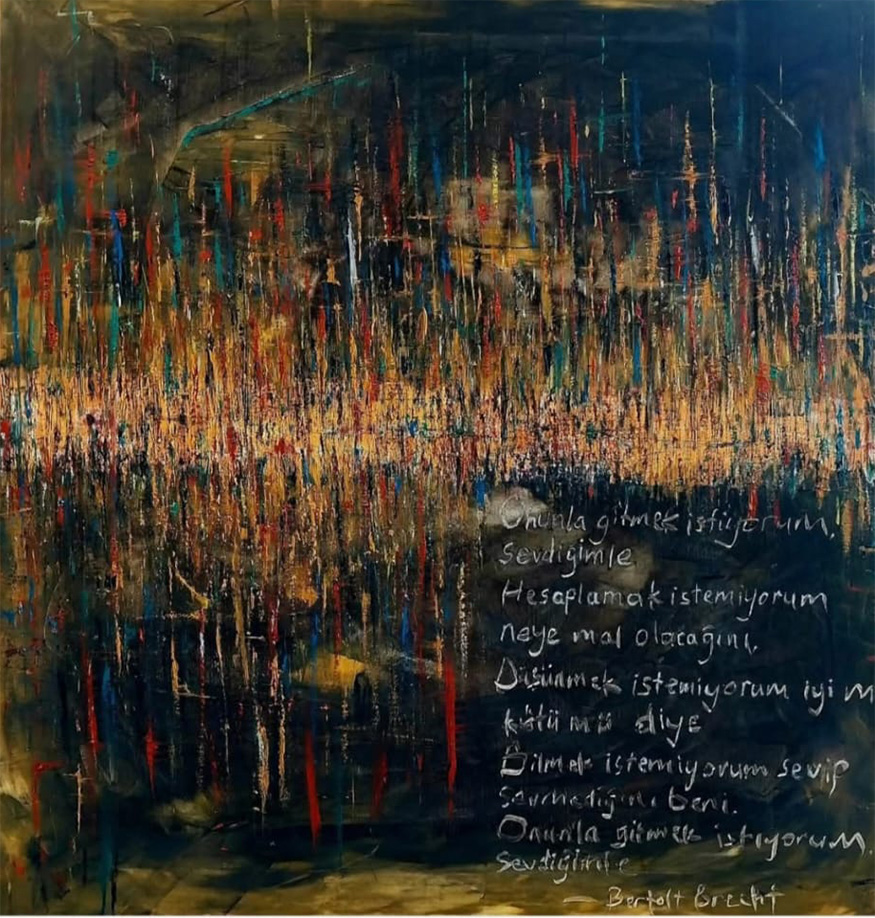 Onunla gitmek istiyorum,
Sevdiğimle
Hesaplamak istemiyorum
neye mal olacağını,
Düşünmek istemiyorum iyi m
kötü mü diye
Bilmek istemiyorum sevip
sevmediğini beni.
Onunla gitmek istiyorum,
Sevdiğimle
— Bertolt Brecht